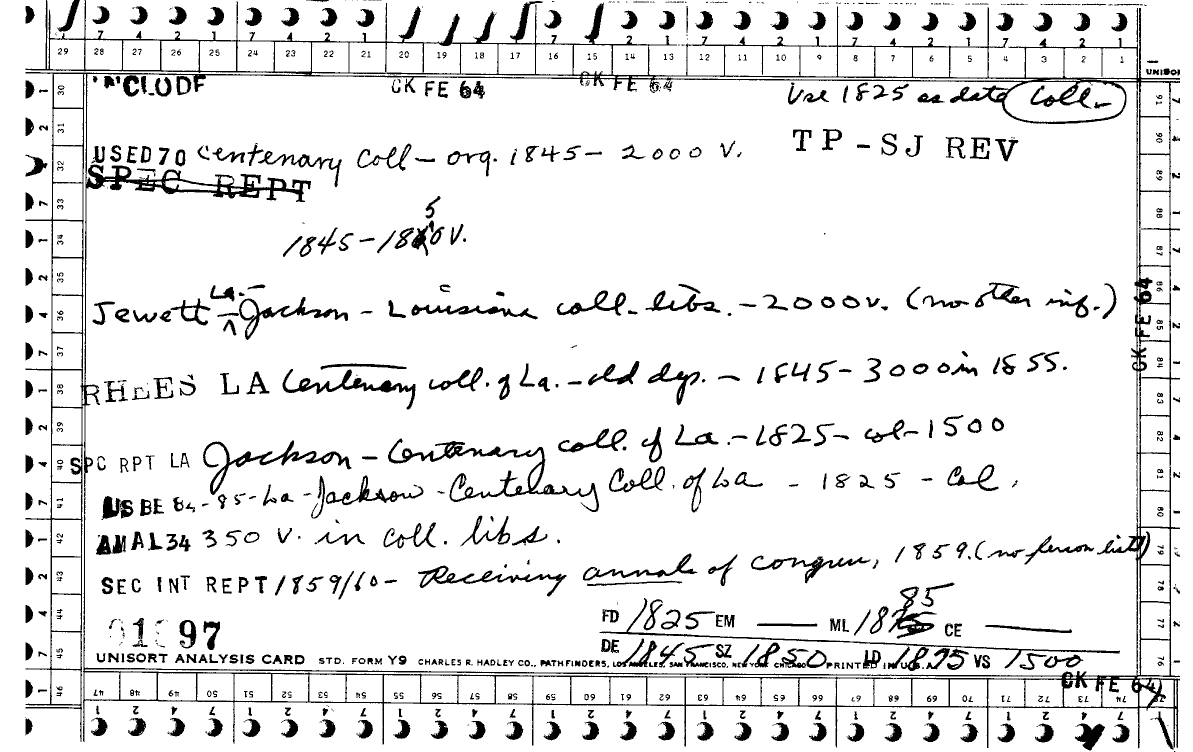 7 4 2 1 7 4 2 1 7 4 2 1 7 4 2 1 7 4 2 1 7 4 2 1 7 4 2 1
29 28 27 26 25 24 23 22 21 20 19 18 17 16 15 14 13 12 11 10 9 8 7 6 5 4 3 2 1
UNISOR
CLUDE CK FE 64 CK FE 64 Use 1825 as date Coll-
USED 70 Centenary Coll - org. 1845 - 2000 V. TP-SJ REV
SPEC REPT
5
1845 - 1860 V.
La.-
Jewett Jackson - Louisiana coll. libs. - 2000 v. (no other inf.)
CK FE 64
RHEES LA Centenary coll. of La. - old dep. - 1845 - 3000 in 1855.
SPC RPT LA Jackson - Centenary coll. of La. - 1825 - col - 1500
USBE 84-85 - La - Jackson - Centenary Coll. of La - 1825 - Col.
AMAL34 350 V. in coll. libs.
SEC INT REPT 1859/60 - Receiving annals of congress, 1859. (no person listed)
85
01097 FD 1825 EM — ML 1875 CE —
DE 1845 SZ 1850 LD 1895 VS 1500
UNISORT ANALYSIS CARD STD. FORM Y9 CHARLES R. HADLEY CO., PATHFINDERS, LOS ANGELES, SAN FRANCISCO, NEW YORK, CHICAGO PRINTED IN U.S.A.
CK FE 64
46 47 48 49 50 51 52 53 54 55 56 57 58 59 60 61 62 63 64 65 66 67 68 69 70 71 72 73 74 75
1 2 4 7 1 2 4 7 1 2 4 7 1 2 4 7 1 2 4 7 1 2 4 7 1 2 4 7